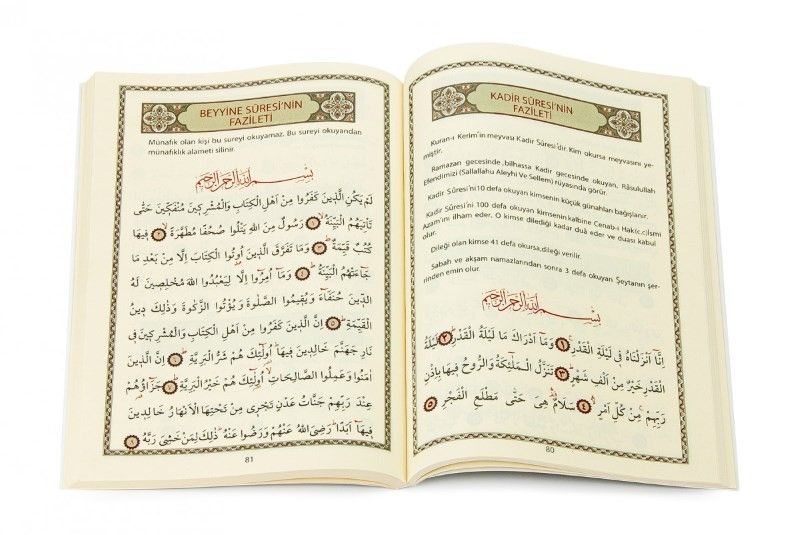 KADİR SÛRESİ'NİN
FAZİLETİ
Kuran-ı Kerim'in meyvası Kadir Sûresi'dir. Kim okursa meyvasını ye-
miştir.
Ramazan gecesinde, bilhassa Kadir gecesinde okuyan, Râsulullah
Efendimizi (Sallallahu Aleyhi Ve Sellem) rüyasında görür.
Kadir Sûresi'ni 10 defa okuyan kimsenin küçük günahları bağışlanır.
Kadir Sûresi'ni 100 defa okuyan kimsenin kalbine Cenab-ı Hak(c.c) İsmi
Azam'ını ilham eder. O kimse dilediği kadar duâ eder ve duası kabul
olur.
Dileği olan kimse 41 defa okursa, dileği verilir.
Sabah ve akşam namazlarından sonra 3 defa okuyan Şeytanın şer-
rinden emin olur.
بِسْمِ اللّٰهِ الرَّحْمٰنِ الرَّحِيمِ
اِنَّٓا اَنْزَلْنَاهُ فِى لَيْلَةِ الْقَدْرِۚ ﴿١﴾ وَمَٓا اَدْرٰيكَ مَا لَيْلَةُ الْقَدْرِۜ ﴿٢﴾ لَيْلَةُ
الْقَدْرِ خَيْرٌ مِنْ اَلْفِ شَهْرٍۜ ﴿٣﴾ تَنَزَّلُ الْمَلٰٓئِكَةُ وَالرُّوحُ فِيهَا بِاِذْنِ
رَبِّهِمْ مِنْ كُلِّ اَمْرٍۙ ﴿٤﴾ سَلَامٌ هِىَ حَتّٰى مَطْلَعِ الْفَجْرِ ﴿٥﴾
80
BEYYİNE SÛRESİ'NİN
FAZİLETİ
Münafık olan kişi bu sureyi okuyamaz. Bu sureyi okuyandan
münafıklık alameti silinir.
بِسْمِ اللّٰهِ الرَّحْمٰنِ الرَّحِيمِ
لَمْ يَكُنِ الَّذِينَ كَفَرُوا مِنْ اَهْلِ الْكِتَابِ وَالْمُشْرِكِينَ مُنْفَكِّينَ حَتّٰى
تَأْتِيَهُمُ الْبَيِّنَةُۙ ﴿١﴾ رَسُولٌ مِنَ اللّٰهِ يَتْلُوا صُحُفًا مُطَهَّرَةًۙ ﴿٢﴾ فِيهَا
كُتُبٌ قَيِّمَةٌۜ ﴿٣﴾ وَمَا تَفَرَّقَ الَّذِينَ اُوتُوا الْكِتَابَ اِلَّا مِنْ بَعْدِ مَا
جَٓاءَتْهُمُ الْبَيِّنَةُۜ ﴿٤﴾ وَمَٓا اُمِرُٓوا اِلَّا لِيَعْبُدُوا اللّٰهَ مُخْلِصِينَ لَهُ
الدِّينَ حُنَفَٓاءَ وَيُقِيمُوا الصَّلٰوةَ وَيُؤْتُوا الزَّكٰوةَ وَذٰلِكَ دِينُ
الْقَيِّمَةِۜ ﴿٥﴾ اِنَّ الَّذِينَ كَفَرُوا مِنْ اَهْلِ الْكِتَابِ وَالْمُشْرِكِينَ فِى
نَارِ جَهَنَّمَ خَالِدِينَ فِيهَاۜ اُو۬لٰٓئِكَ هُمْ شَرُّ الْبَرِيَّةِۜ ﴿٦﴾ اِنَّ الَّذِينَ
اٰمَنُوا وَعَمِلُوا الصَّالِحَاتِۙ اُو۬لٰٓئِكَ هُمْ خَيْرُ الْبَرِيَّةِۜ ﴿٧﴾ جَزَٓاؤُ۬هُمْ
عِنْدَ رَبِّهِمْ جَنَّاتُ عَدْنٍ تَجْرِى مِنْ تَحْتِهَا الْاَنْهَارُ خَالِدِينَ
فِيهَٓا اَبَدًاۜ رَضِىَ اللّٰهُ عَنْهُمْ وَرَضُوا عَنْهُۜ ذٰلِكَ لِمَنْ خَشِىَ رَبَّهُ ﴿٨﴾
81